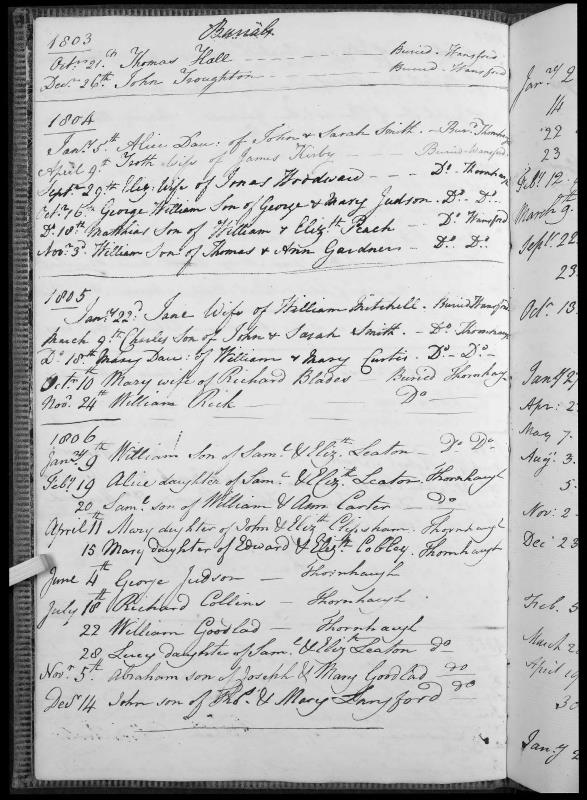 Burials
1803
Octr. 21st Thomas Hall - - - - Buried - Wansford
Decr. 26th John Troughton - - - - Buried - Wansford
1804
Janry 5th Alice Dau: of John & Sarah Smith. - Burd. Thornhaugh
April 9th Troth wife of James Kirby - - - Buried Wansford.
Septr. 29th Eliz: wife of Jonas Woodward - - - Do. Thornhaugh
Octr. 16th George William Son of George & Mary Judson. Do. - Do.
Do. 18th Matthias Son of William & Elizth Peach - - Do. Wansford
Novr. 3d. William Son of Thomas & Ann Gardner - Do. Do.
1805
Janry 22d. Jane Wife of William Mitchell. Buried Wansford
March 9th Charles Son of John & Sarah Smith. - Do. Thornhaugh
Do. 18th Mary Dau: of William & Mary Curtis. Do. - Do. -
Octr. 10th Mary wife of Richard Blades - Buried Thornhaugh
Novr. 24th William Rick - Do -
1806
Janry 9th William Son of Saml. & Elizth Leaton - Do. Do.
Feby 19 Alice daughter of Saml. & Elizth Leaton Thornhaugh
20 Saml. son of William & Ann Carter - Do
April 11th Mary daughter of John & Elizth Clipsham. Thornhaugh
15 Mary Daughter of Edward & Elizth Cobley. Thornhaugh
June 4th George Judson - Thornhaugh
July 18th Richard Collins - Thornhaugh.
22 William Goodlad - Thornhaugh
28 Lucy daughter of Saml. & Eliz Leaton do
Novr. 5th. Abraham son of Joseph & Mary Goodlad do
Decr 14 John son of Thos. & Mary Langford do
Janry 2
14
22
23
Feby 12
March 9
Septr. 22
23
Octr 13
Janry 2
Apr: 2
May 7.
Augt. 3.
5.
Nov: 2
Decr 23
Feb. 5
March 2
April 19
30
Jany 2